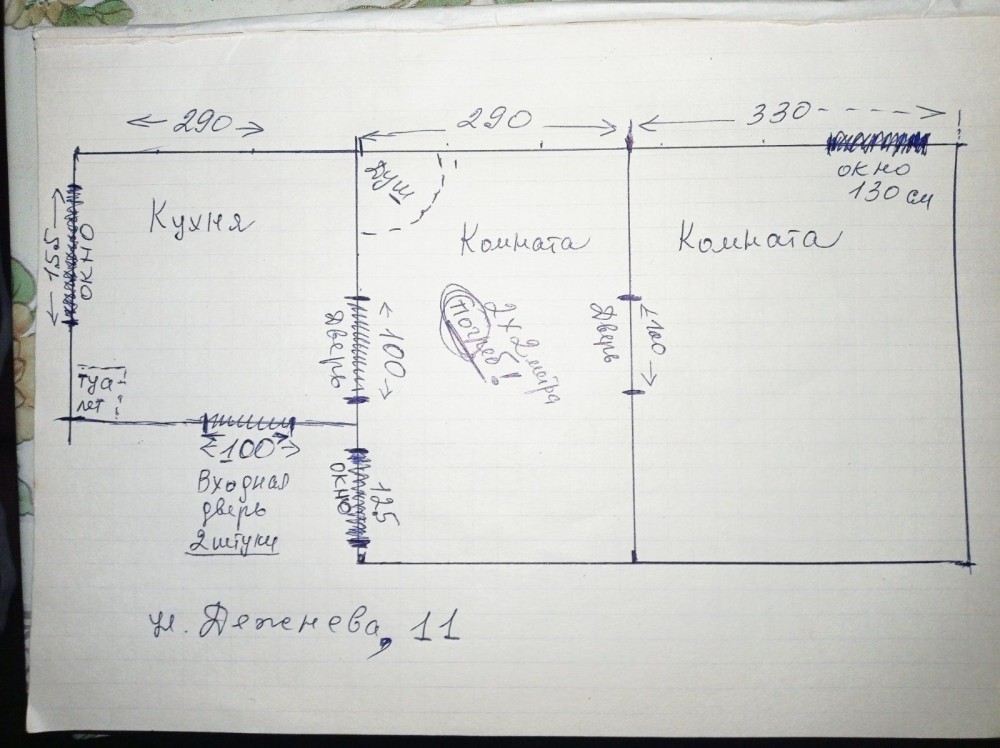 290
290
330
окно
130 см
Душ
Кухня
Комната
Комната
155
окно
Дверь
100
погреб!
2х2 метра
Дверь
100
Туа
лет
100
Входная
дверь
2 штуки
окно
125
ул. Дежнева, 11